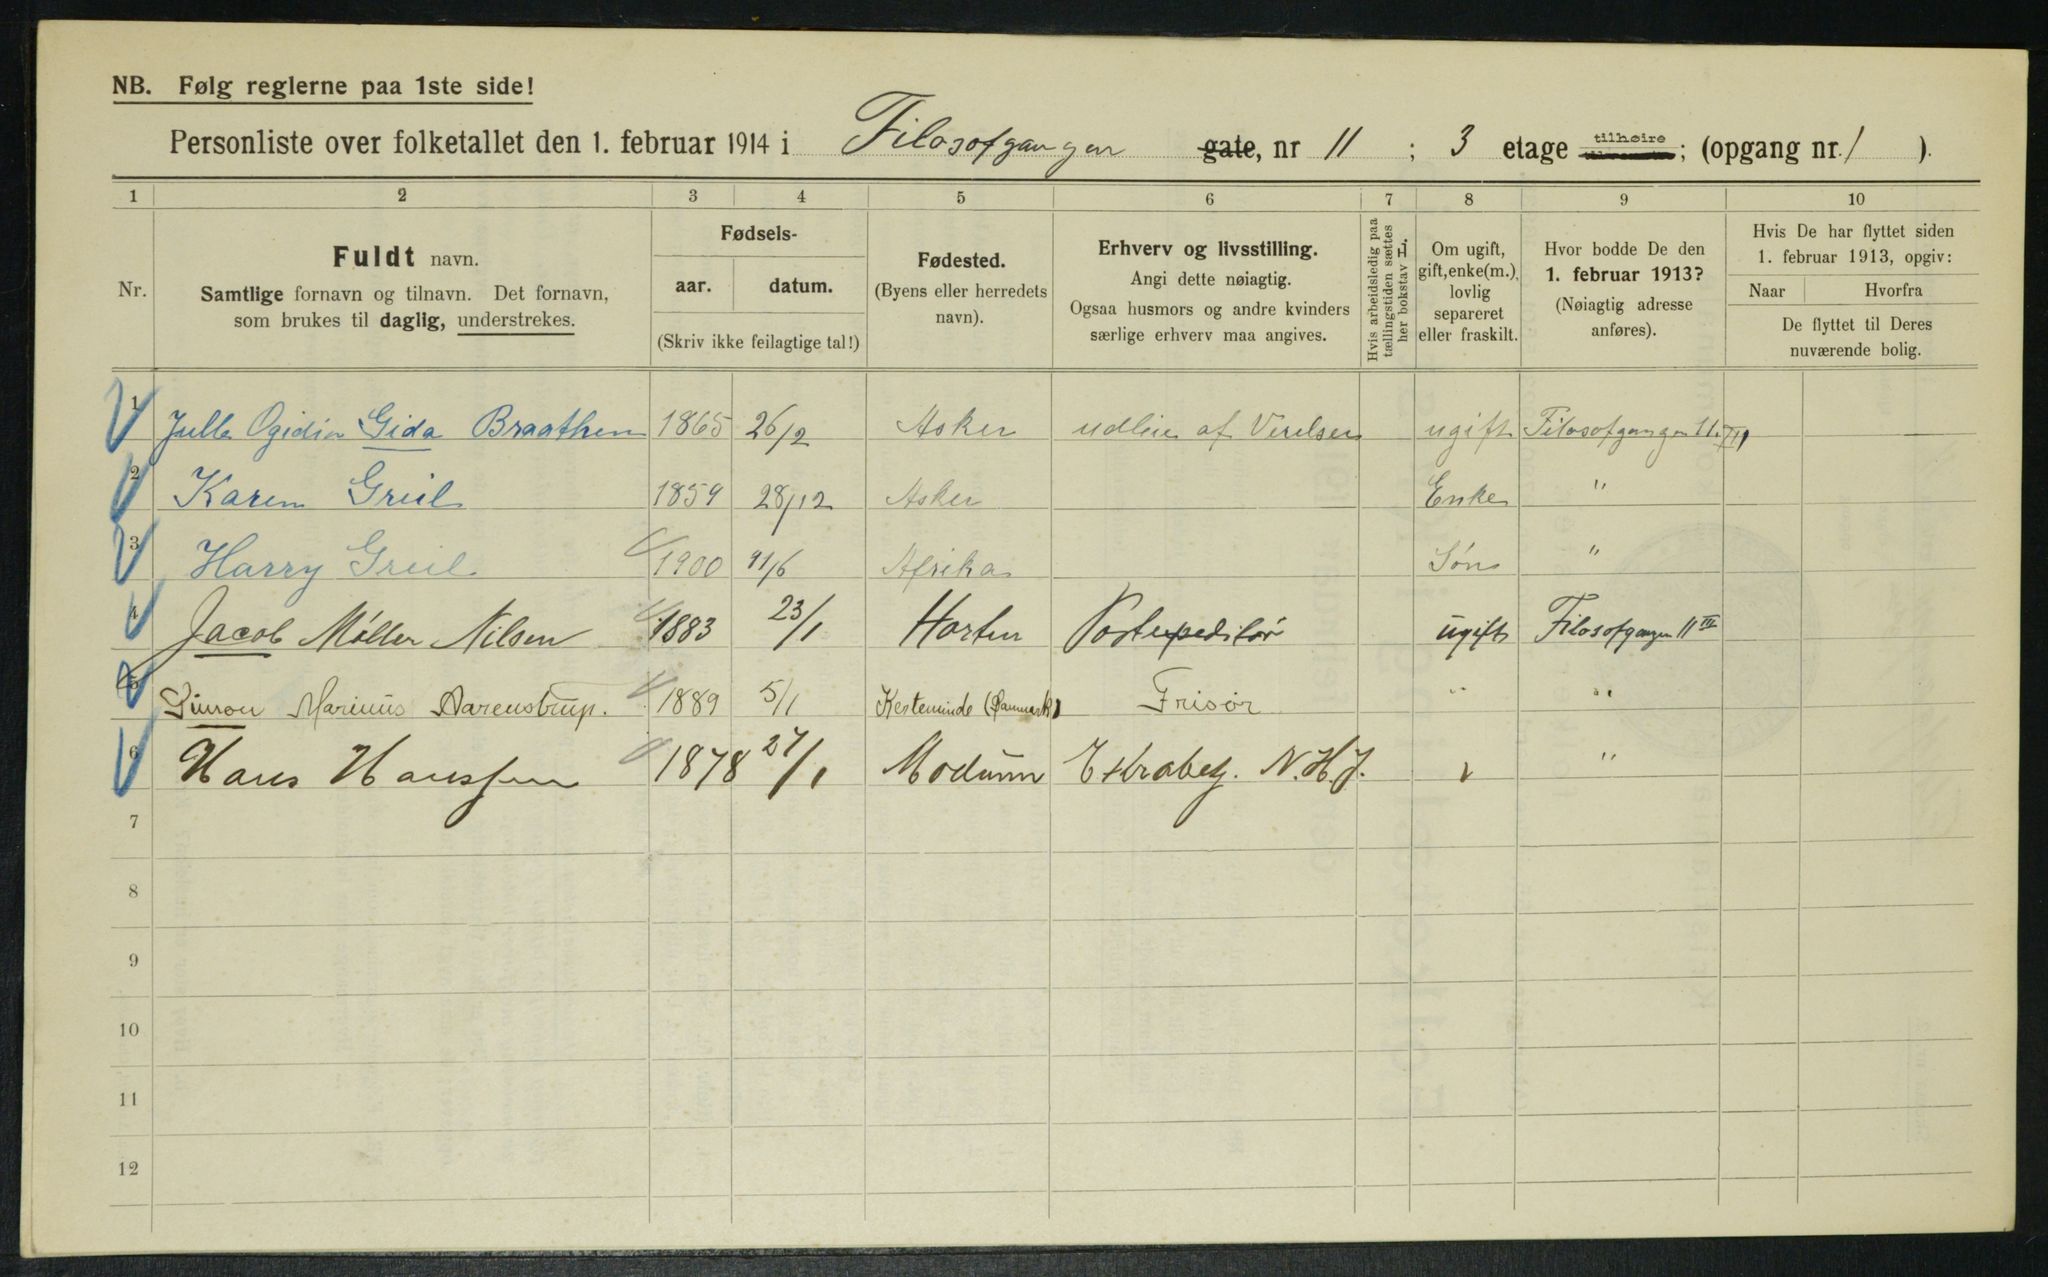 NB. Følg reglerne paa 1ste side!
Personliste over folketallet den 1. februar 1914 i Filosofgangen gate, nr 11 ; 3 etage tilhøire ; (opgang nr. 1 ).
1 2 3 4 5 6 7 8 9 10
Nr.
Fuldt navn.
Samtlige fornavn og tilnavn. Det fornavn,
som brukes til daglig, understrekes.
Fødsels-
aar. datum.
(Skriv ikke feilagtige tal!)
Fødested.
(Byens eller herredets
navn).
Erhverv og livsstilling.
Angi dette nøiagtig.
Ogsaa husmors og andre kvinders
særlige erhverv maa angives.
Hvis arbeidsledig paa
tællingstiden sættes
her bokstav L.
Om ugift,
gift, enke(m.),
lovlig
separeret
eller fraskilt.
Hvor bodde De den
1. februar 1913?
(Nøiagtig adresse
anføres).
Hvis De har flyttet siden
1. februar 1913, opgiv:
Naar Hvorfra
De flyttet til Deres
nuværende bolig.
1 Julle Ogidia Gida Braathen 1865 26/2 Asker udleie af Verelser ugift Filosofgangen 11 III
2 Karen Greil 1859 28/12 Asker Enke "
3 Harry Greil 1900 11/6 Afrika Søn "
4 Jacob Møller Nilsen 1883 23/1 Horten Postexpeditør ugift Filosofgangen 11 III
5 Simon Marinus Aarenstrup. 1889 5/1 Kerteminde (Danmark) Frisør " "
6 Hans Hanssen 1878 27/1 Modum Extrabetj. N.H.J. "
7
8
9
10
11
12